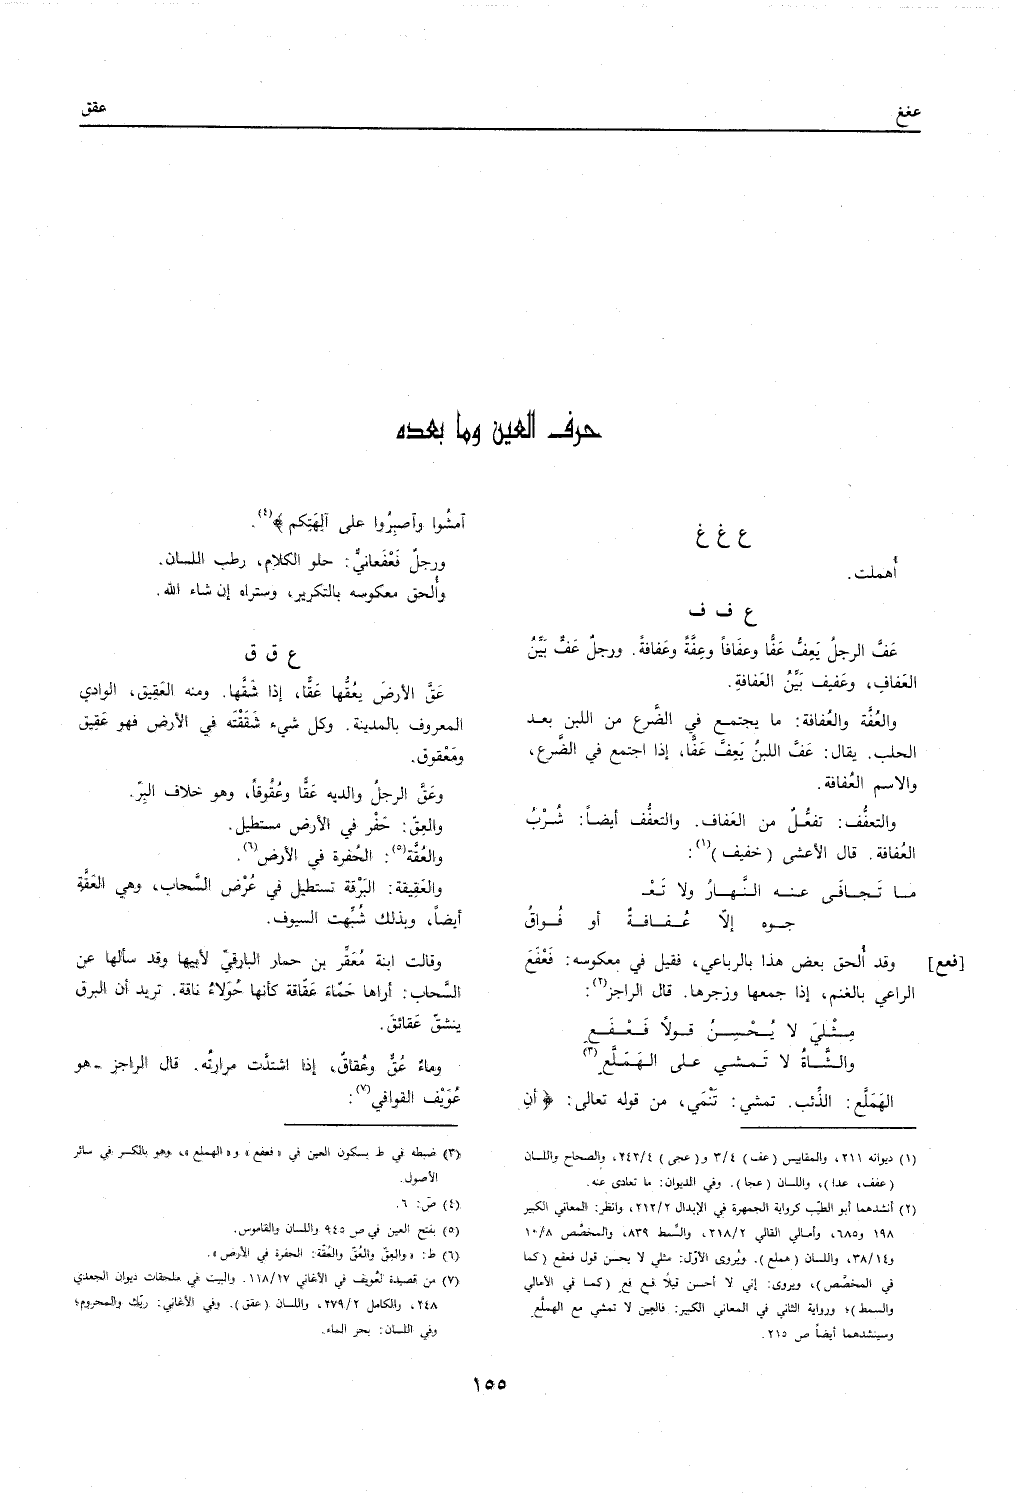 عغغ
عقق
حرف العين وما بعده
ع غ غ
أُهملت.
ع ف ف
عَفَّ الرجلُ يَعِفُّ عَفًّا وعفَافاً وعِفَّةً وعَفافةً. ورجلٌ عَفٌّ بَيِّنُ
العَفافِ، وعَفيف بَيِّنُ العَفافةِ.
والعُفَّة والعُفافة: ما يجتمع في الضَّرع من اللبن بعد
الحلب. يقال: عَفَّ اللبنُ يَعِفّ عَفًّا، إذا اجتمع في الضَّرع،
والاسم العُفافة.
والتعفُّف: تفعُّلٌ من العَفاف. والتعفُّف أيضاً: شُرْبُ
العُفافة. قال الأعشى (خفيف)(١):
ما تَجافَى عنه النَّهارُ ولا تَعْـ
ـجوه إلّا عُفافةٌ أو فُواقُ
[فعع] وقد أُلحق بعض هذا بالرباعي، فقيل في معكوسه: فَعْفَعَ
الراعي بالغنم، إذا جمعها وزجرها. قال الراجز(٢):
مِثْلِيَ لا يُحْسِنُ قولاً فَعْفَعِ
والشَّاةُ لا تَمشي على الهَمَلَّعِ(٣)
الهَمَلَّع: الذِّئب. تمشي: تَنْمَي، من قوله تعالى: ﴿ أنِ
(١) ديوانه ٢١١، والمقاييس (عف) ٣/٤ و(عجى) ٢٤٢/٤، والصحاح واللسان
(عفف، عدا)، واللسان (عجا). وفي الديوان: ما تعادى عنه.
(٢) أنشدهما أبو الطيّب كرواية الجمهرة في الإبدال ٢١٢/٢، وانظر: المعاني الكبير
١٩٨ و٦٨٥، وأمالي القالي ٢١٨/٢، والسِّمط ٨٣٩، والمخصَّص ١٠/٨
و٣٨/١٤، واللسان (هملع). ويُروى الأوّل: مثلي لا يحسن قول فعفع (كما
في المخصَّص)، ويروى: إني لا أحسن قيلًا فع فع (كما في الأمالي
والسمط)؛ ورواية الثاني في المعاني الكبير: فالعين لا تمشي مع الهملَّع.
وسينشدهما أيضاً ص ٢١٥.
آمشُوا وآصبِرُوا على آلِهَتِكم ﴾(٤).
ورجلٌ فَعْفَعانيٌّ: حلو الكلام، رطب اللسان.
وأُلحق معكوسه بالتكرير، وستراه إن شاء الله.
ع ق ق
عَقَّ الأرضَ يعُقُّها عَقًّا، إذا شَقَّها. ومنه العَقِيق، الوادي
المعروف بالمدينة. وكل شيء شَقَقْتَه في الأرض فهو عَقِيق
ومَعْقوق.
وعَقَّ الرجلُ والديه عَقًّا وعُقُوقاً، وهو خلاف البِرّ.
والعِقّ: حَفْر في الأرض مستطيل.
والعُقَّة(٥): الحُفرة في الأرض(٦).
والعَقِيقة: البَرْقة تستطيل في عُرْض السَّحاب، وهي العَقَّة
أيضاً، وبذلك شُبِّهت السيوف.
وقالت ابنة مُعَقِّر بن حمار البارقيّ لأبيها وقد سألها عن
السَّحاب: أراها حَمّاءَ عَقّاقة كأنها حُوَلاءُ ناقة. تريد أن البرق
ينشقّ عَقائقَ.
وماءٌ عُقٌّ وعُقاقٌ، إذا اشتدَّت مرارتُه. قال الراجز ـ هو
عُوَيْف القوافي(٧):
(٣) ضبطه في ط بسكون العين في «فعفع» و«الهملع»، وهو بالكسر في سائر
الأصول.
(٤) صّ: ٦.
(٥) بفتح العين في ص ٩٤٥ واللسان والقاموس.
(٦) ط: «والعِقّ والعُقّ والعُقّة: الحفرة في الأرض».
(٧) من قصيدة لعُويف في الأغاني ١١٨/١٧. والبيت في ملحقات ديوان الجعدي
٢٤٨، والكامل ٢٧٩/٢، واللسان (عقق). وفي الأغاني: ربّك والمحروم؛
وفي اللسان: بحر الماء.
١٥٥